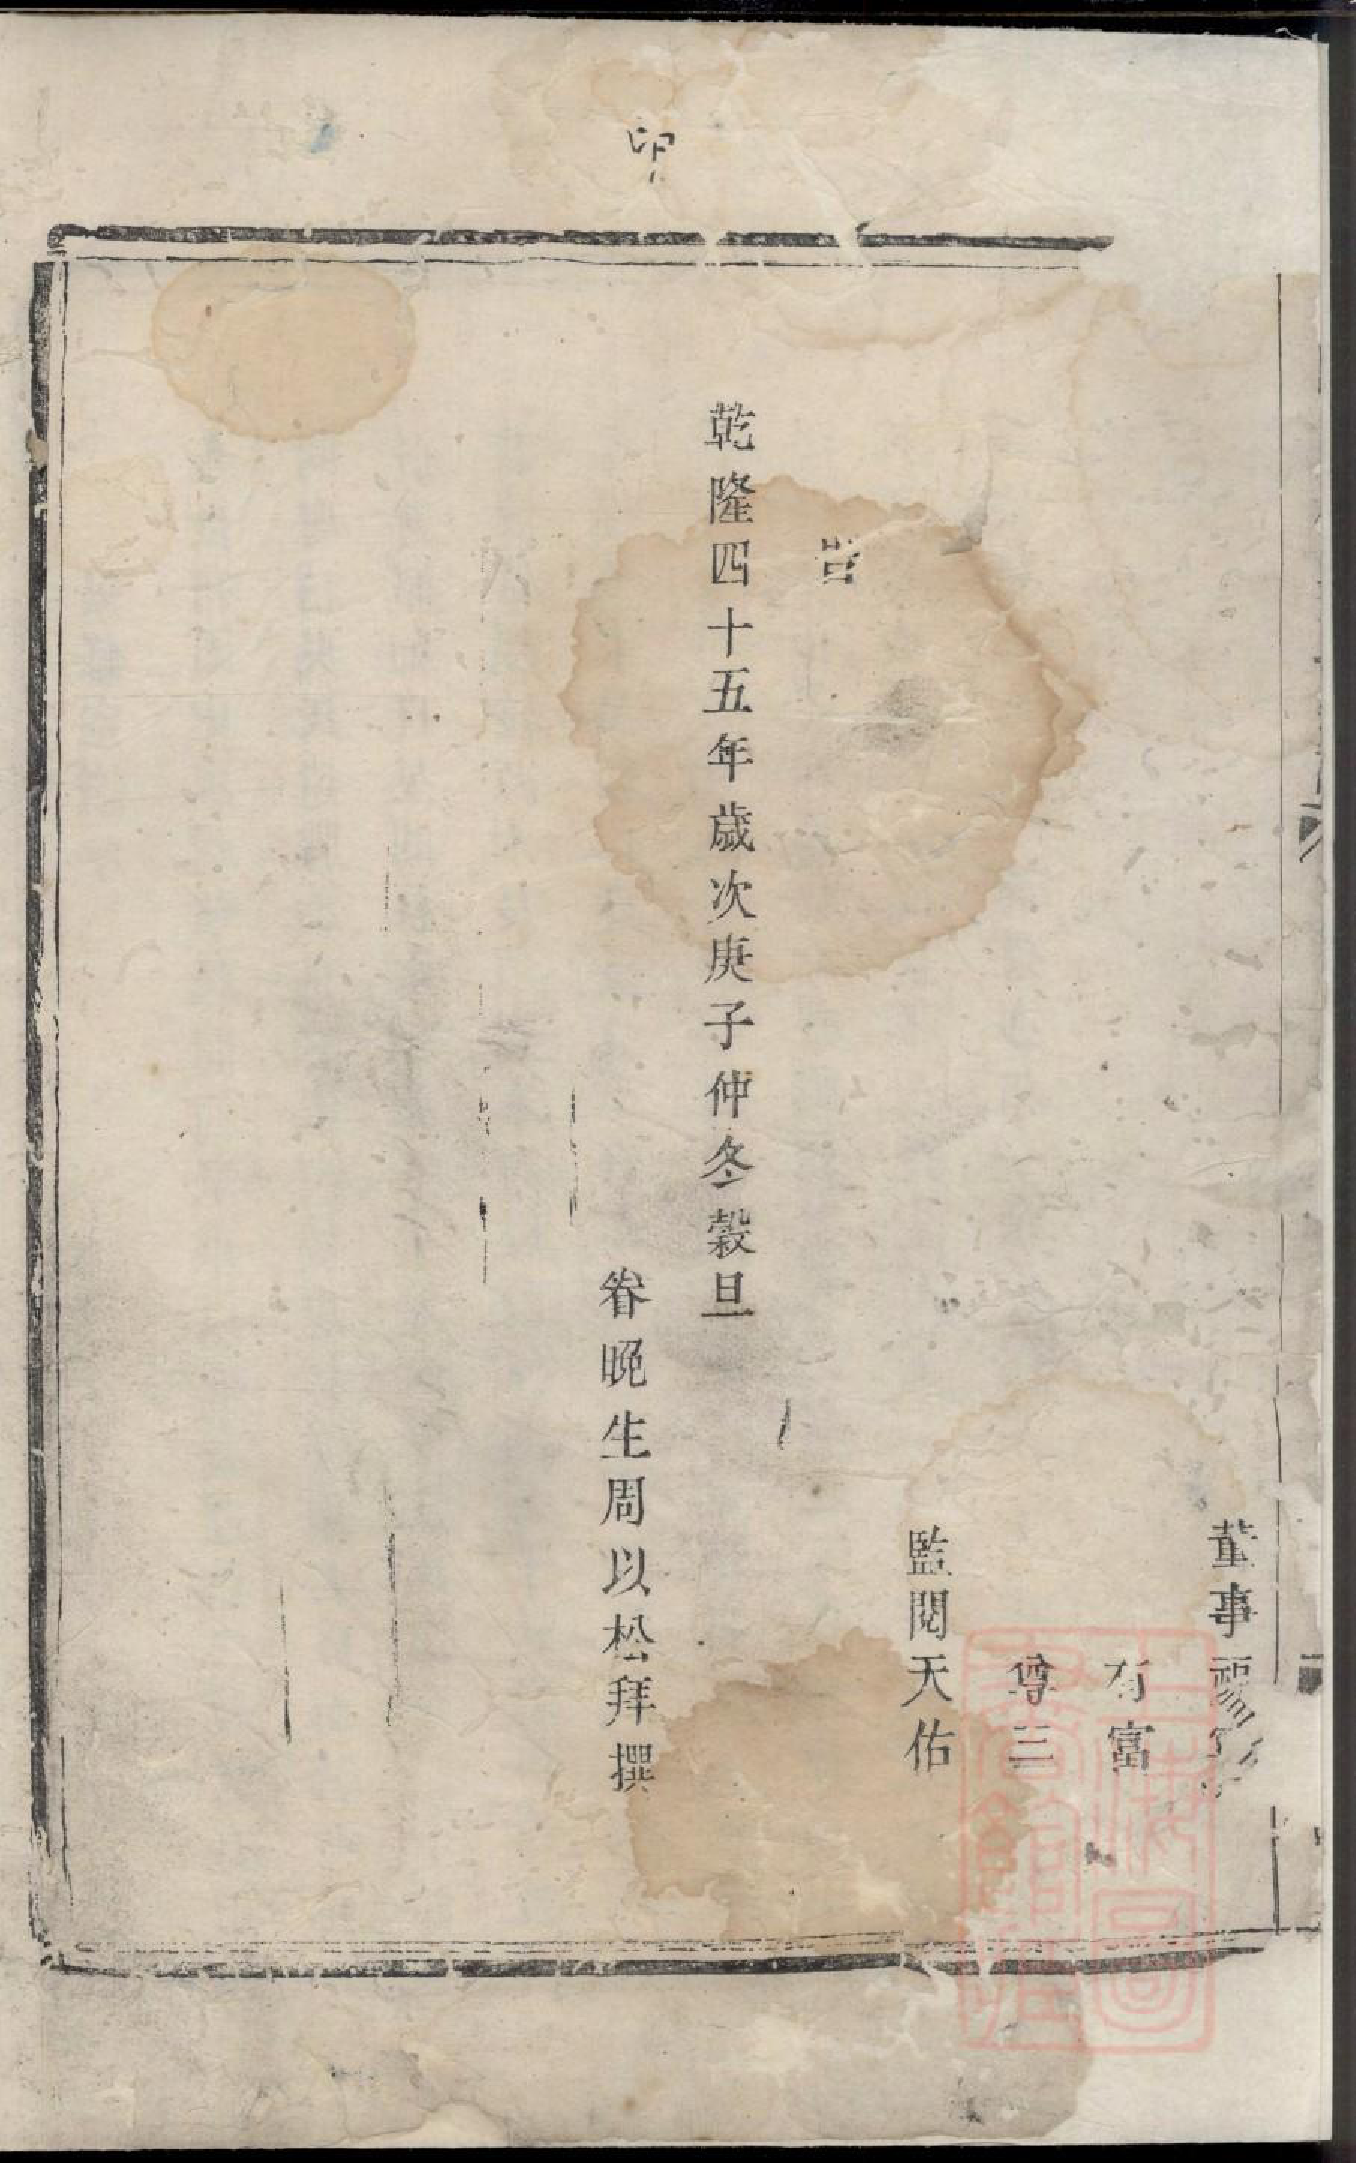 董事福
有富
尊三
監閱天佑
旹
乾隆四十五年歲次庚子仲冬穀旦
眷晚生周以松拜撰
上海圖書館藏